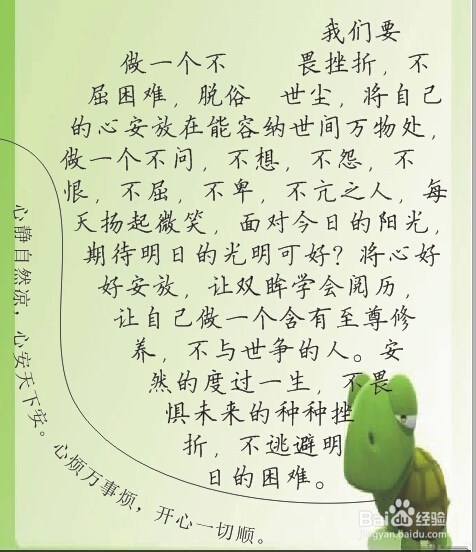 我们要
做一个不 畏挫折，不
屈困难，脱俗 世尘，将自己
的心安放在能容纳世间万物处，
做一个不问，不想，不怨，不
恨，不屈，不卑，不亢之人，每
天扬起微笑，面对今日的阳光，
期待明日的光明可好？将心好
好安放，让双眸学会阅历，
让自己做一个含有至尊修
养，不与世争的人。安
然的度过一生，不畏
惧未来的种种挫
折，不逃避明
日的困难。
心静自然凉，心安天下安。心烦万事烦，开心一切顺。
Baidu经验
jingyan.baidu.com